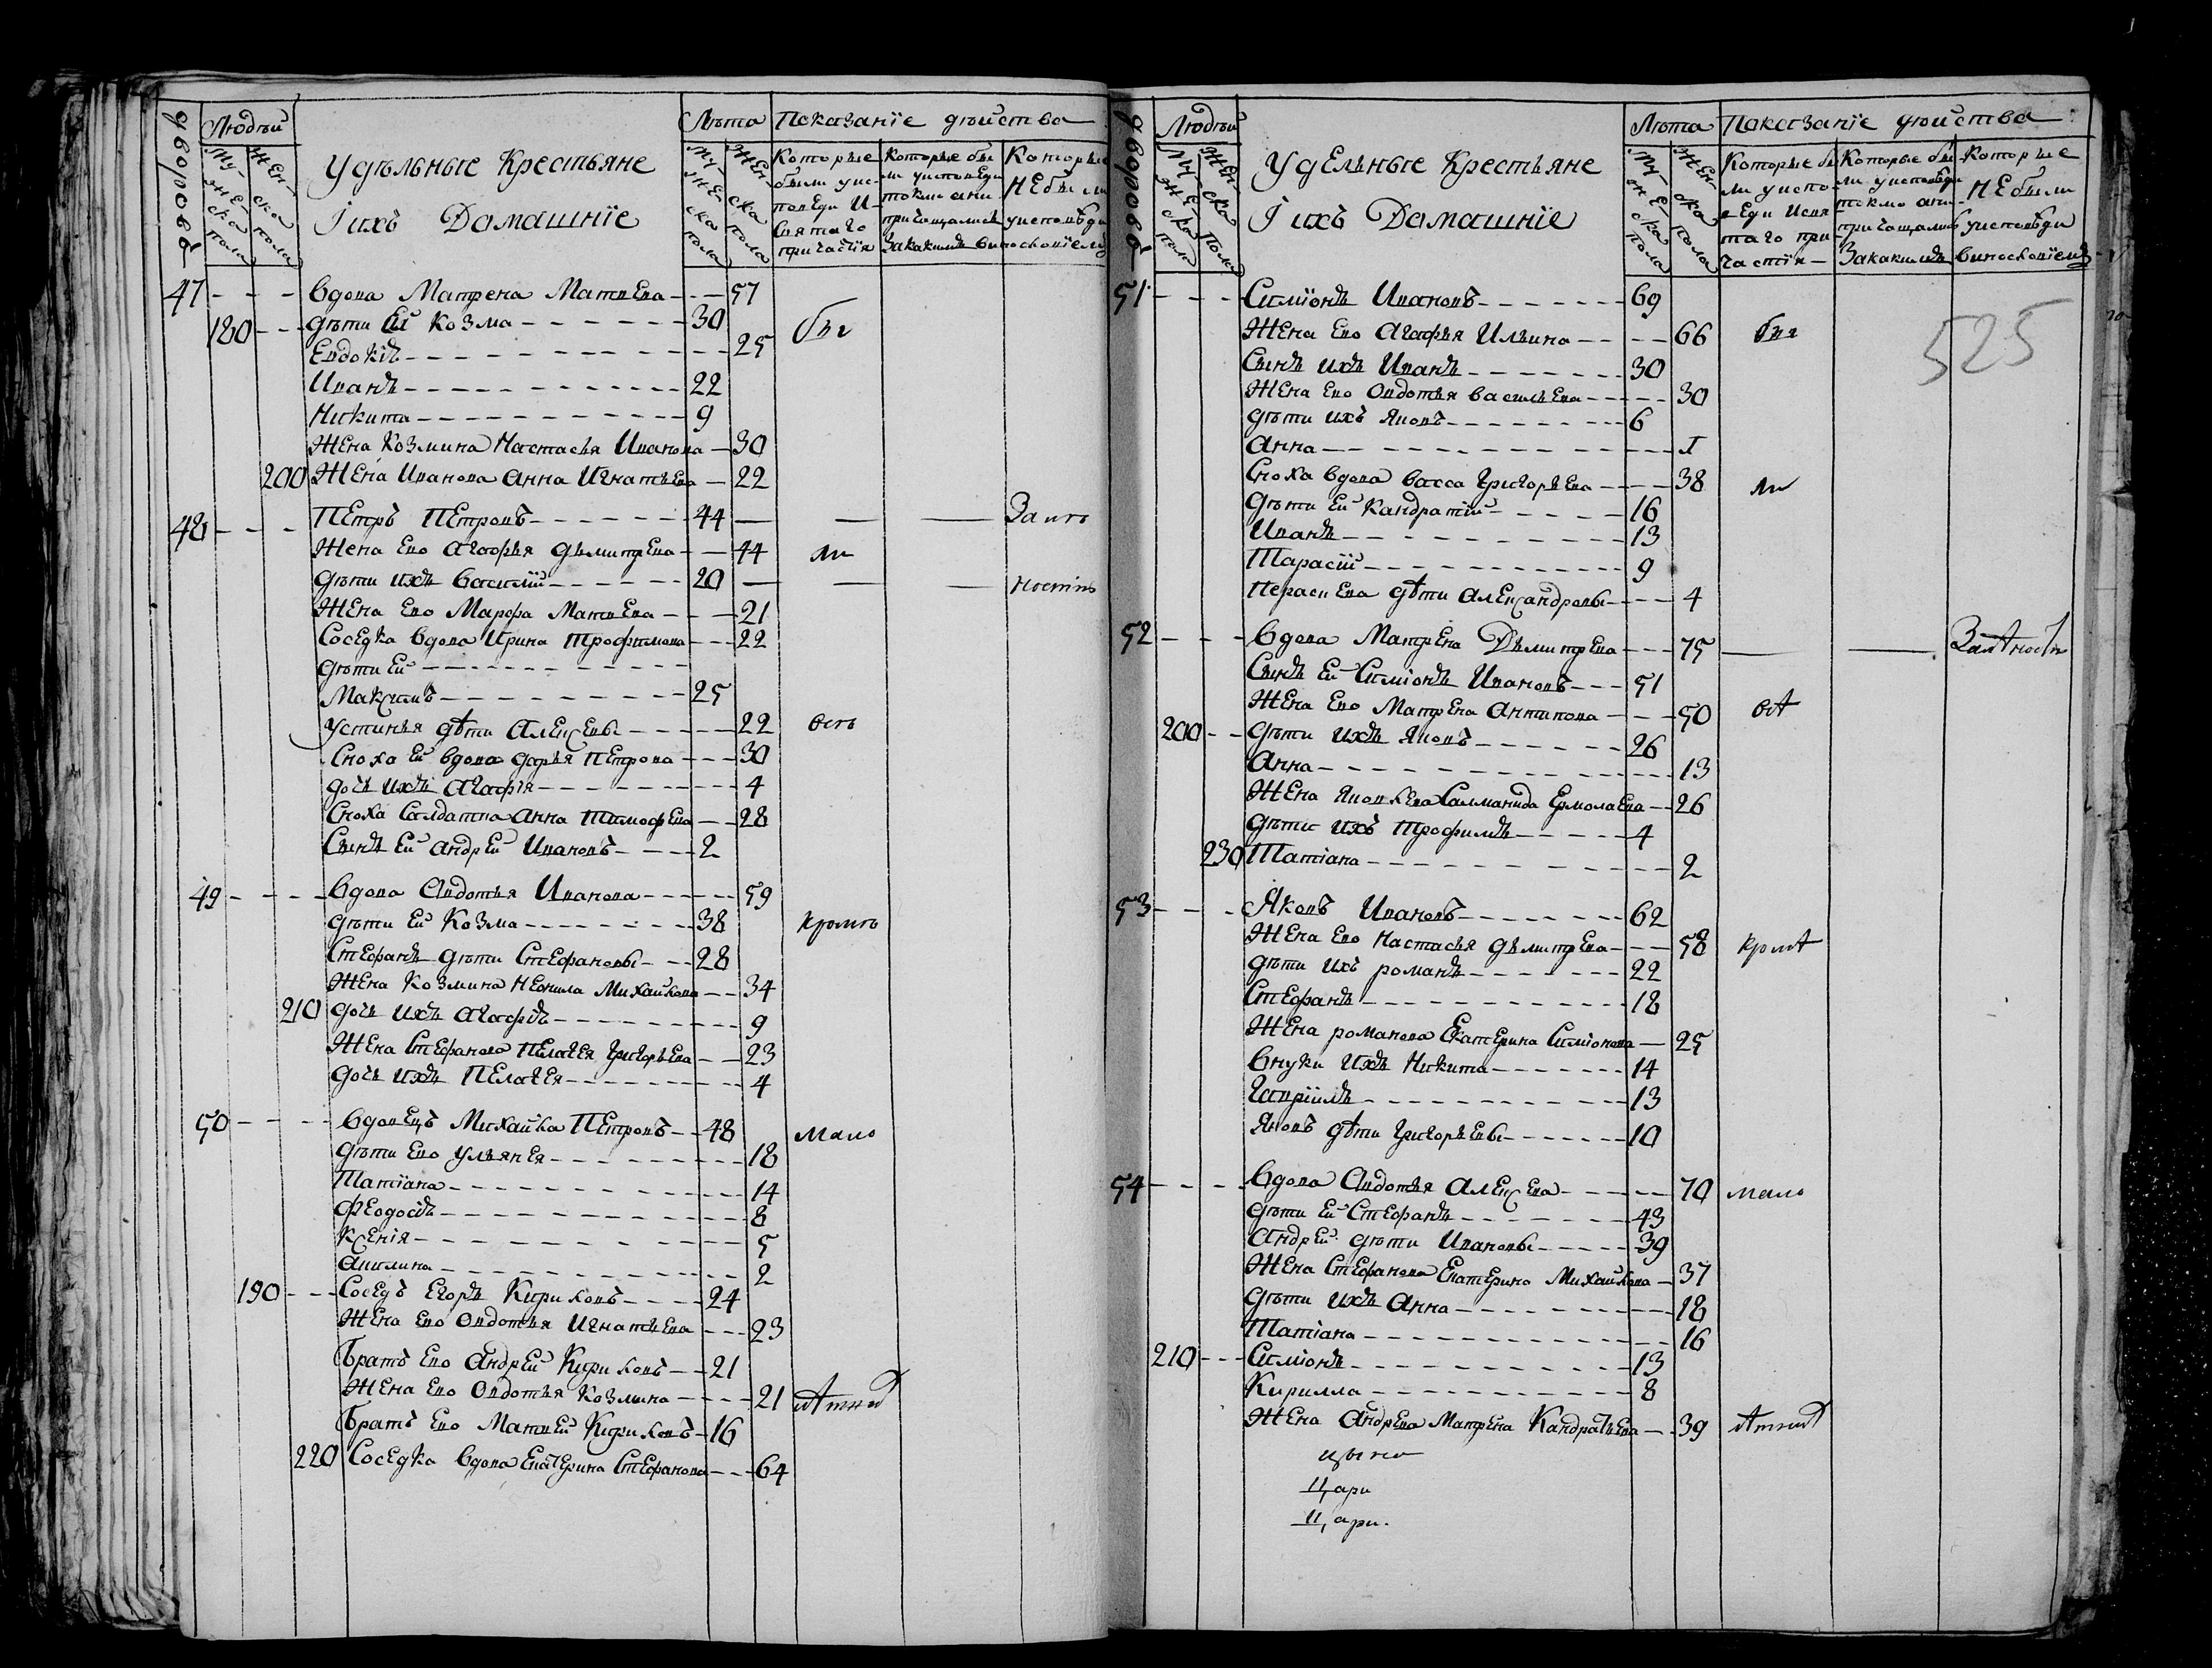 дворовъ
Людѣй
Мужеска пола
Женска пола
Удѣльные Крестьяне
Iихъ Домашнїе
Лѣта
Мужеска пола
Женска пола
Показанїе дѣйства
Которые были у исповеди и святаго причастїя
Которые были у исповеди токмо а не причащались
Которые не были у исповѣди
За какимъ винословїемъ
47 - - - вдова Матрена Матвева - - 57
180 - - дѣти Ей Козма - - - 30
Евдокїѣ - - - 25
Иванъ - - - 22
Никита - - - 9
Жена Козмина Настасья Иванова - 30
200 Жена Иванова Анна Игнатьева - 22
48 - - - Петръ Петровъ - - - 44 — — —
Жена Ево Агафья Дьмитрева - - 44
дѣти ихъ Василїй - - - 20 — — —
Жена Ево Марфа Матвева - - - 21
Соседка вдова Ирина Трофимова - - - 22
дѣти Ей - - -
Максимъ - - - 25
Устинья дѣти Алексевы - - - 22
Сноха Ей вдова Дарья Петрова - - - 30
дочь ихъ Агафїя - - - 4
Сноха Салдатка Анна Тимофева - - 28
Сынъ Ей Андрей Ивановъ - - - 2
49 - - - вдова Авдотья Иванова - - - 59
дѣти Ей Козма - - - 38 кромѣ
Стефанъ дѣти Стефановы - - 28
Жена Козмина Неонила Михайлова - - 34
210 дочь ихъ Агафїѣ - - - 9
Жена Стефанова Пелагея Григорьева - - 23
дочь ихъ Пелагея - - - 4
50 - - - вдовецъ Михайла Петровъ - - 48 мало
дѣти Ево Ульянея - - - 18
Татїана - - - 14
Феодосїѣ - - - 8
Ксенїя - - - 5
Акилина - - - 2
190 - - - Соседъ Егоръ Кириловъ - - - 24
Жена Ево Овдотья Игнатьева - - - 23
Братъ Ево Андрей Кириловъ - - 21
Жена Ево Овдотья Козмина - - - 21 лѣтныѣ
Братъ Ево Матвей Кириловъ - 16
220 Соседка вдова Екатерина Стефанова - - - 64
дворовъ
Людѣй
Мужеска пола
Женска пола
Удельные Крестьяне
Iихъ Домашнїе
Лѣта
Мужеска пола
Женска пола
Показанїе дѣйства
Которые были у исповеди и святаго причастїя
Которые были у исповѣди токмо а не причащались
Которые не были у исповѣди
За какимъ винословїемъ
51 - - - Симїонъ Ивановъ - - - 69
525
Жена Ево Агафья Ильина - - - 66
Сынъ ихъ Иванъ - - - 30
Жена Ево Овдотья Васильева - - - 30
дѣти ихъ Яковъ - - - 6
Анна - - - 1
Сноха вдова Васса Григорьева - - - 38
дѣти Ей Кандратїй - - - 16
Иванъ - - - 13
Тарасїй - - - 9
Парасковья дѣти Александровы - - - 4
52 - - - вдова Матрена Дьмитрева - - - 75 — —
Сынъ Ей Симїонъ Ивановъ - - - 51
Жена Ево Матрена Антипова - - - 50
200 - - дѣти ихъ Яковъ - - - 26
Анна - - - 13
Жена Яковлева Саламанида Ермолаева - - 26
дѣти ихъ Трофимъ - - - 4
230 Татїана - - - 2
53 - - - Яковъ Ивановъ - - - 62
Жена Ево Настасья Дьмитрева - - - 58 кромѣ
дѣти ихъ Романъ - - - 22
Стефанъ - - - 18
Жена Романова Екатерина Симїонова - 25
внуки ихъ Никита - - - 14
Гаврїилъ - - - 13
Яковъ дѣти Григорьевы - - - 10
54 - - - вдова Авдотья Алексева - - - 70 мало
дѣти Ей Стефанъ - - - 43
Андрей дѣти Ивановы - - - 39
Жена Стефанова Екатерина Михайлова - 37
дѣти ихъ Анна - - - 18
Татїана - - - 16
210 - - - Симїонъ - - - 13
Кирилла - - - 8
Жена Андрева Матрена Кандратьева - - 39